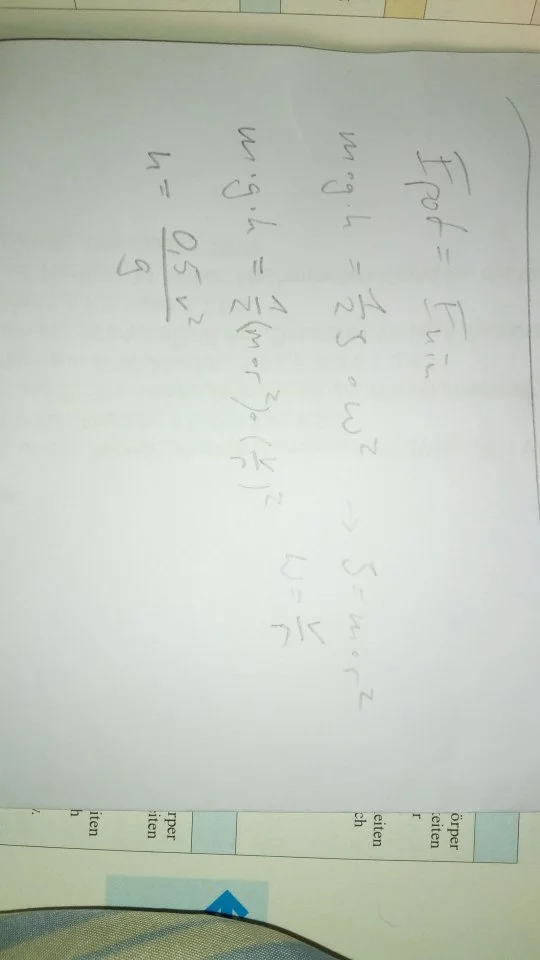 Epot = Ekin
m·g·h = 1/2 J · ω² → J = m·r²
ω = v/r
m·g·h = 1/2 (m·r²)·(v/r)²
h = 0,5 v²/g
örper
keiten
r
eiten
ch
rper
iten
iten
h